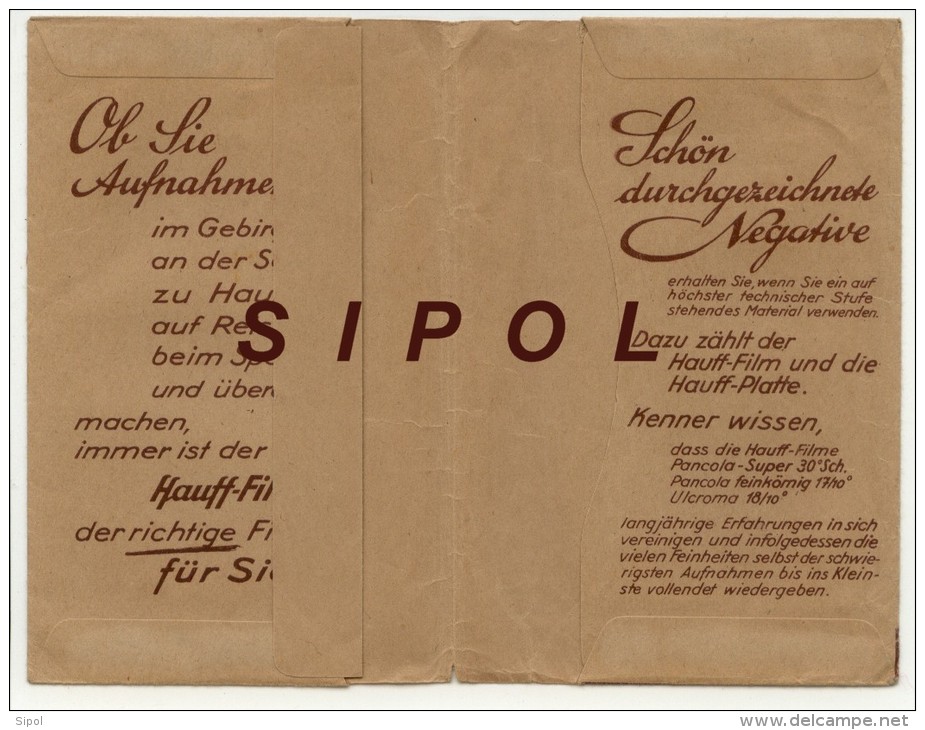 Ob Sie
Aufnahme
im Gebir
an der S
zu Hau
auf Reis
beim Sp
und über
machen,
immer ist der
Hauff-Fil
der richtige Fi
für Sie
SIPOL
Schön
durchgezeichnete
Negative
erhalten Sie, wenn Sie ein auf
höchster technischer Stufe
stehendes Material verwenden.
Dazu zählt der
Hauff-Film und die
Hauff-Platte.
Kenner wissen,
dass die Hauff-Filme
Pancola-Super 30°Sch.
Pancola feinkörnig 17/10°
Ulcroma 18/10°
langjährige Erfahrungen in sich
vereinigen und infolgedessen die
vielen Feinheiten selbst der schwie-
rigsten Aufnahmen bis ins Klein-
ste vollendet wiedergeben.
Sipol
www.delcampe.net